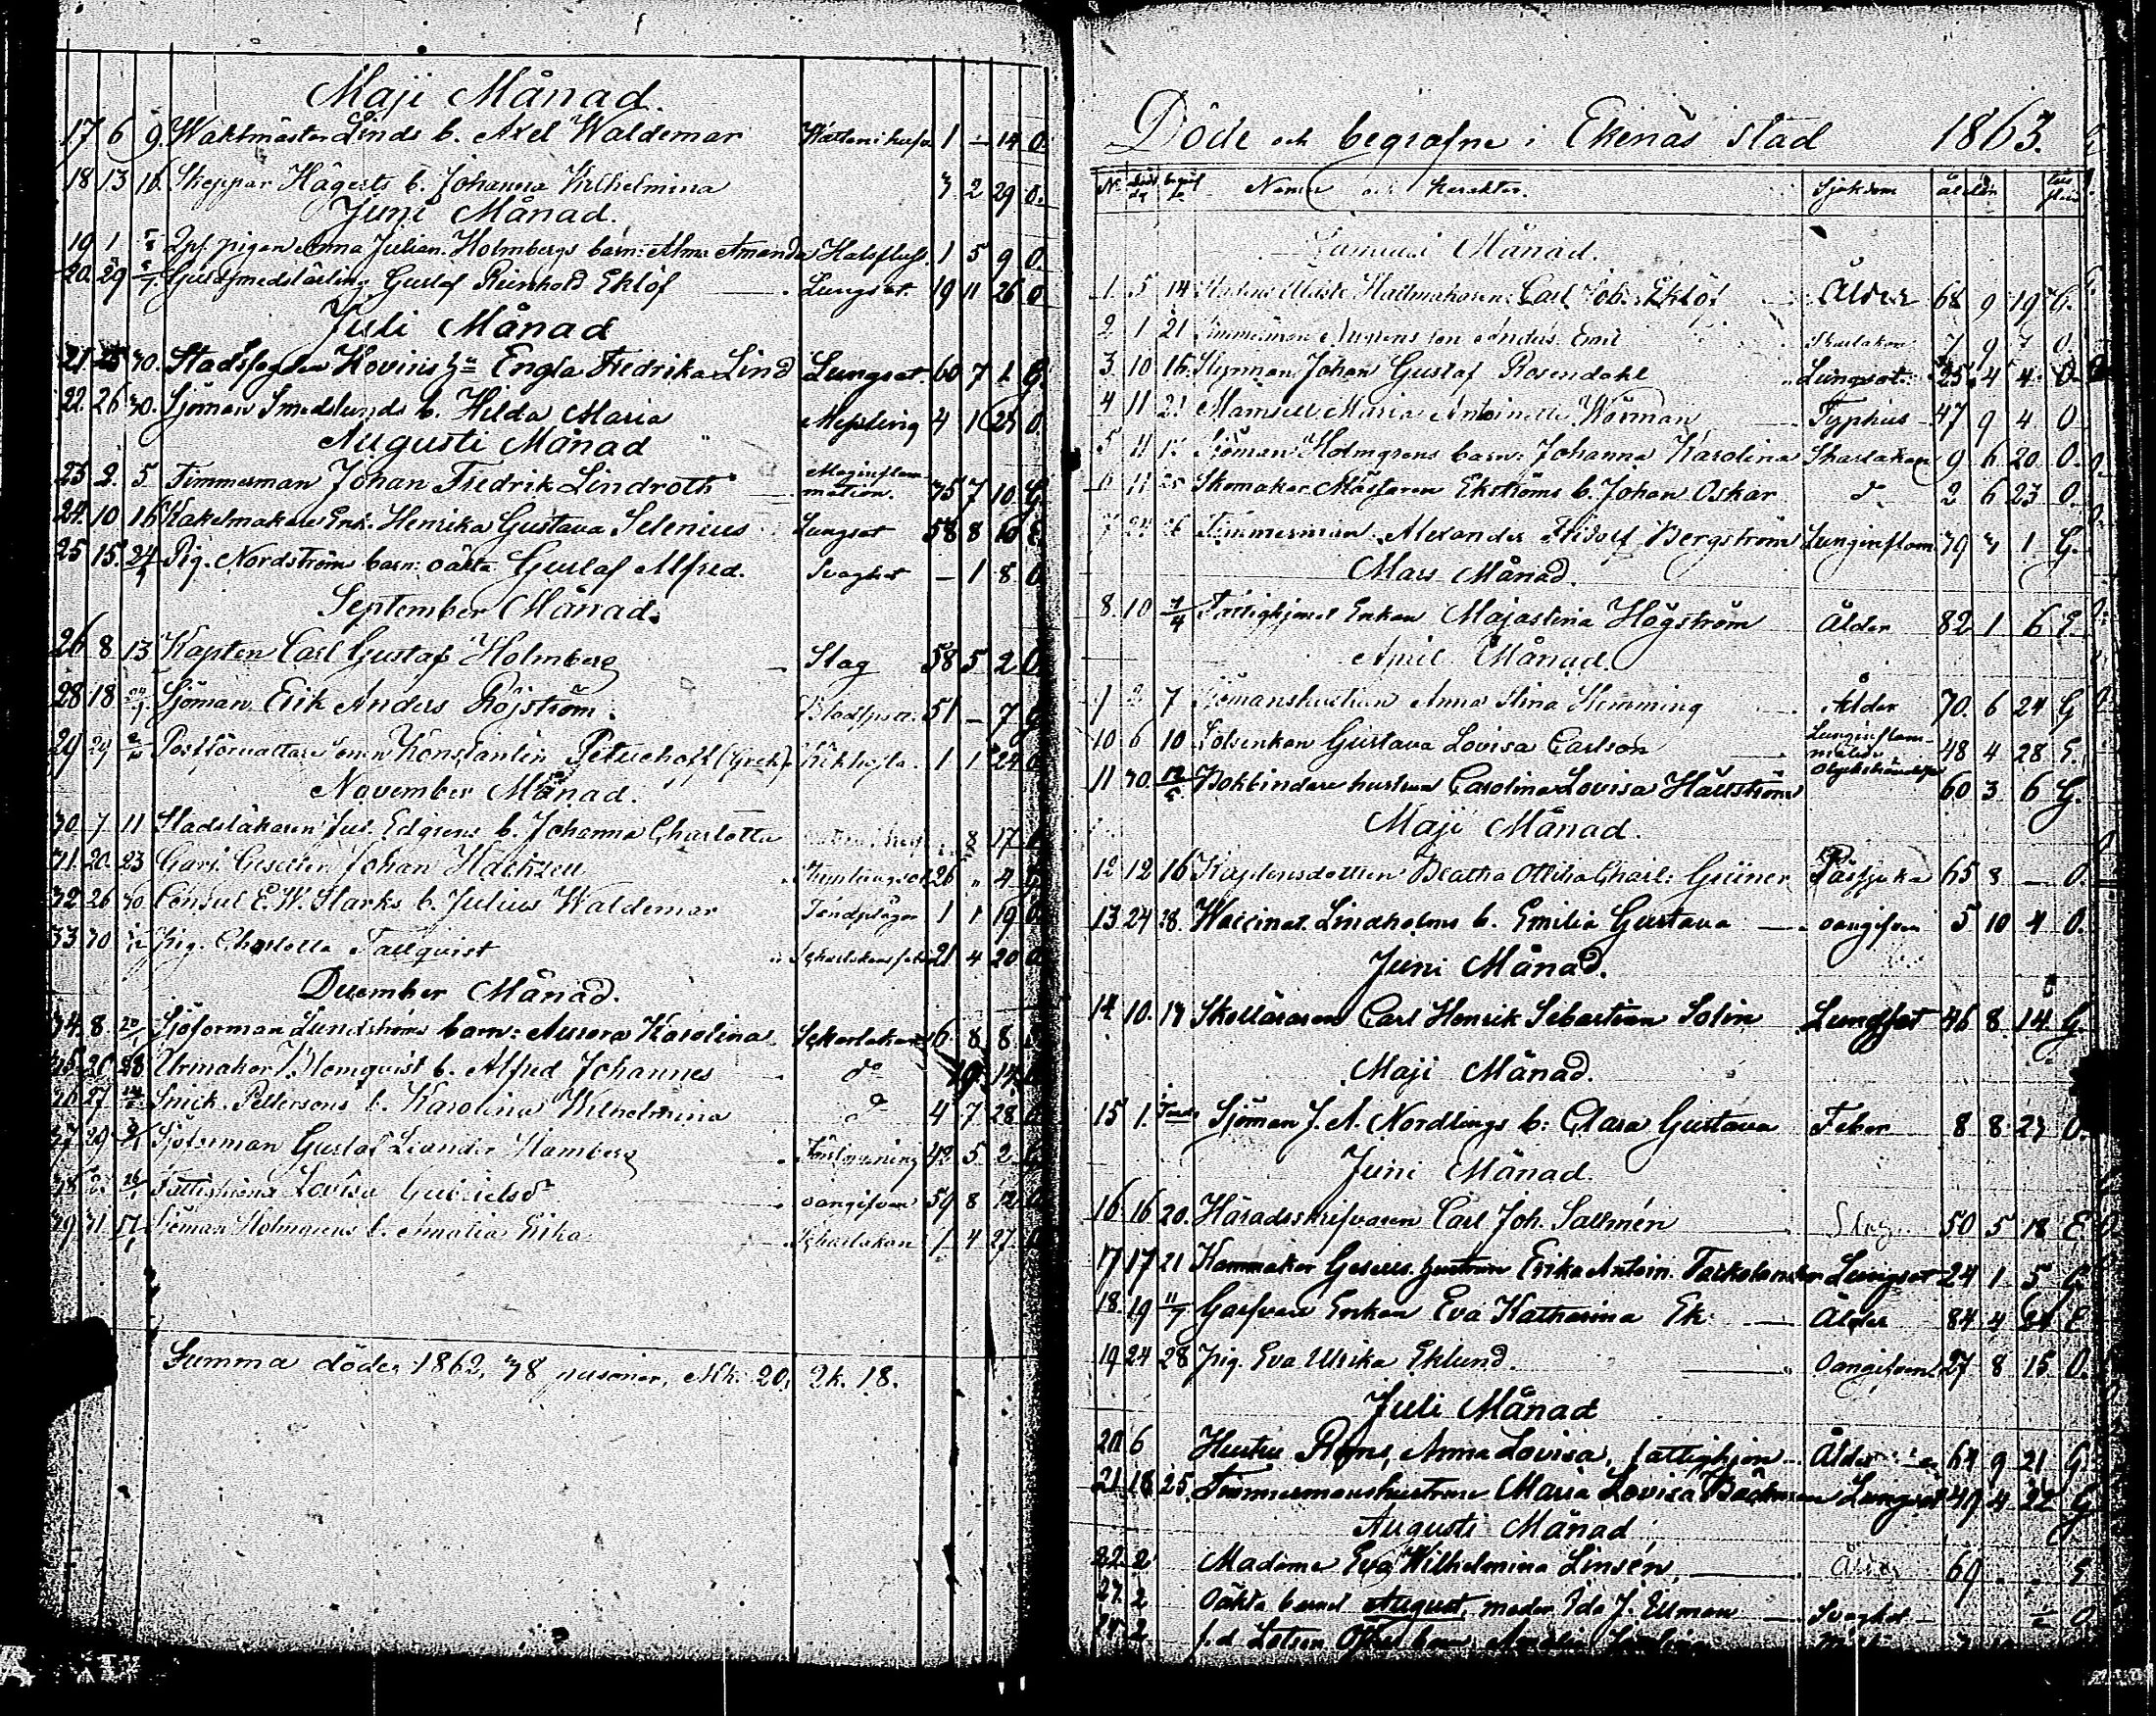 Maji Månad.
17 6 9. Waktmästar Linds b. Axel Waldemar Watten i hufv. 1 – 14 O.
18 13 16. Skeppar Hägerts b. Johanna Wilhelmina 3 2 29 O.
Juni Månad.
19 1 pigan Anna Julian. Holmbergs barn: Alma Amanda Halsfluss. 1 5 9 O.
20. 29 Guldsmedslärling Gustaf Reinhold Eklöf Lungsot. 19 11 26 O
Juli Månad
21 25 30. Stadsfogden Kovirs Engla Fredrika Lind Lungsot. 60 7 1 G.
22. 26 30. Sjöman Smedslunds b. Hilda Maria Messling 4 1 23 O.
Augusti Månad
23 2. 5 Timmerman Johan Fredrik Lindroth Maginflammation. 75 7 10 G
24. 10 16 Kakelmakare Enk. Henrika Gustava Selenius Lungsot 58 8 10 E.
25 15. 24 Pig. Nordström barn: oäkta Gustaf Alfred. Svaghet – 1 8 O
September Månad.
26 8 13 Kapten Carl Gustaf Holmberg Slag 58 5 2 O
28 18 Sjöman Erik Anders Röjström. 51 – 7 G
29 29 Postförvaltare sonen Konstantin Petuchoff (Grek). Kikhosta. 1 1 24 O
November Månad.
30 7 11 Stadsläkaren Jul. Edgrens b. Johanna Charlotta 8 17
31 20. 23 Garf. Gesellen Johan 26 " 4
32 26 30 Consul E. W. Starks b. Julius Waldemar Tandplågor 1 1 19 O
33 30 pig. Charlotta Tallqvist Scharlakansfeber 21 4 20 O
December Månad.
34. 8. Sjöforman Lundströms barn: Aurora Karolina Scharlakan 6 8 8
35. 26 28 Urmakar Blomqvist b. Alfred Johannes do 14
36 27 Snick. Pettersons b. Karolina Wilhelmina do 4 7 28
37 29 Gustaf Leander Hamberg 42 5 2
38 Lovisa oangifven 59 8 12
39 31 Sjöman Holmgrens b. Amalia Erika Scharlakan 1 4 27
Summa döde 1862, 38 personer, Mk. 20, Qk. 18.
Döde och begrafne i Ekenäs stad 1863.
No död begraf Namn och karakter. Sjukdom ålder
Januari Månad.
1. 5 14 Carl Joh. Eklöf Ålder 68 9 19 G.
2 1 21 son Anders Emil Skarlakan 7 9 7 O.
3 10 16 Styrman Johan Gustaf Rosendahl Lungsot 25 4 4 O
4 11 21 Mamsell Maria Antoinette Wörman Typhus 47 9 4 O
5 11 Sjöman Holmgrens barn: Johanna Karolina Skarlakan 9 6 20 O.
6 11 25 Skomakar Mästaren Ekströms b. Johan Oskar do 2 6 23 O.
7 24 26 Timmerman Alexander Fridolf Bergström Lunginflam 39 3 1 G.
Mars Månad.
8. 10 7/4 Fattighjonet Enkan Majastina Högström Ålder 82 1 6 E.
April Månad.
9 2 7 Sjömanshustrun Anna Stina Hemming Ålder 70. 6 24 G
10 6 10 Lotsenkan Gustava Lovisa Carlson Lunginflammation 48 4 28 E.
11 30. Bokbindare hustrun Carolina Lovisa Hällström Olyckshändelse 60 3 6 G.
Maji Månad.
12 12 16 Kaptensdottern Beatha Ottilia Charl: Grüner 65 8 – O.
13 24 28. Waccinat. Lindholms b. Emilia Gustava oangifven 5 10 4 O.
Juni Månad.
14. 10. 14 Skolläraren Carl Henrik Sebastian Solin Lungsot 46 8 14 G
Maji Månad.
15 1. Sjöman J. A. Nordlings b: Clara Gustava Feber 8 8 23 O.
Juni Månad.
16. 16 20. Häradsskrifvaren Carl Joh. Sallmén Slag 50 5 18 E
17 17 21 Kammakar Geselles. hustrun Erika Antoin. Lungsot 24 1 5 G
18. 19 11/7 Garfvare Enkan Eva Katharina Ek Ålder 84 4 24 E
19 24 28 Pig. Eva Ulrika Eklund. Oangifven 27 8 15 O.
Juli Månad
20 6 Hustru Roms, Anna Lovisa, fattighjon Ålder 64 9 21 G
21. 18 25. Timmermanshustrun Maria Lovisa Bäckman Lungsot 49 4 22 G
Augusti Månad
22. 2 Madame Eva Wilhelmina Linsén, Ålder 69 E
23. 2 Oäkta barnet August, moder Ida J. Ellman Svaghet O.
24 2 f.d. Lotsen